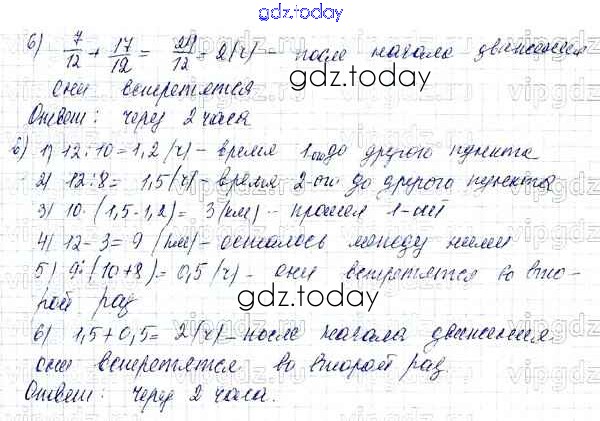 gdz.today
6) 7/12 + 17/12 = 24/12 = 2 (ч) - после начала движения
они встретятся
gdz.today
Ответ: через 2 часа
в) 1) 12:10 = 1,2 (ч) - время 1-ого до другого пункта
2) 12:8 = 1,5 (ч) - время 2-ого до другого пункта
3) 10·(1,5-1,2) = 3 (км) - прошел 1-ый
4) 12-3 = 9 (км) - осталось между ними
5) 9:(10+8) = 0,5 (ч) - они встретятся во вто-
рой раз
gdz.today
6) 1,5+0,5 = 2 (ч) - после начала движения
они встретятся во второй раз
Ответ: через 2 часа.
gdz.today